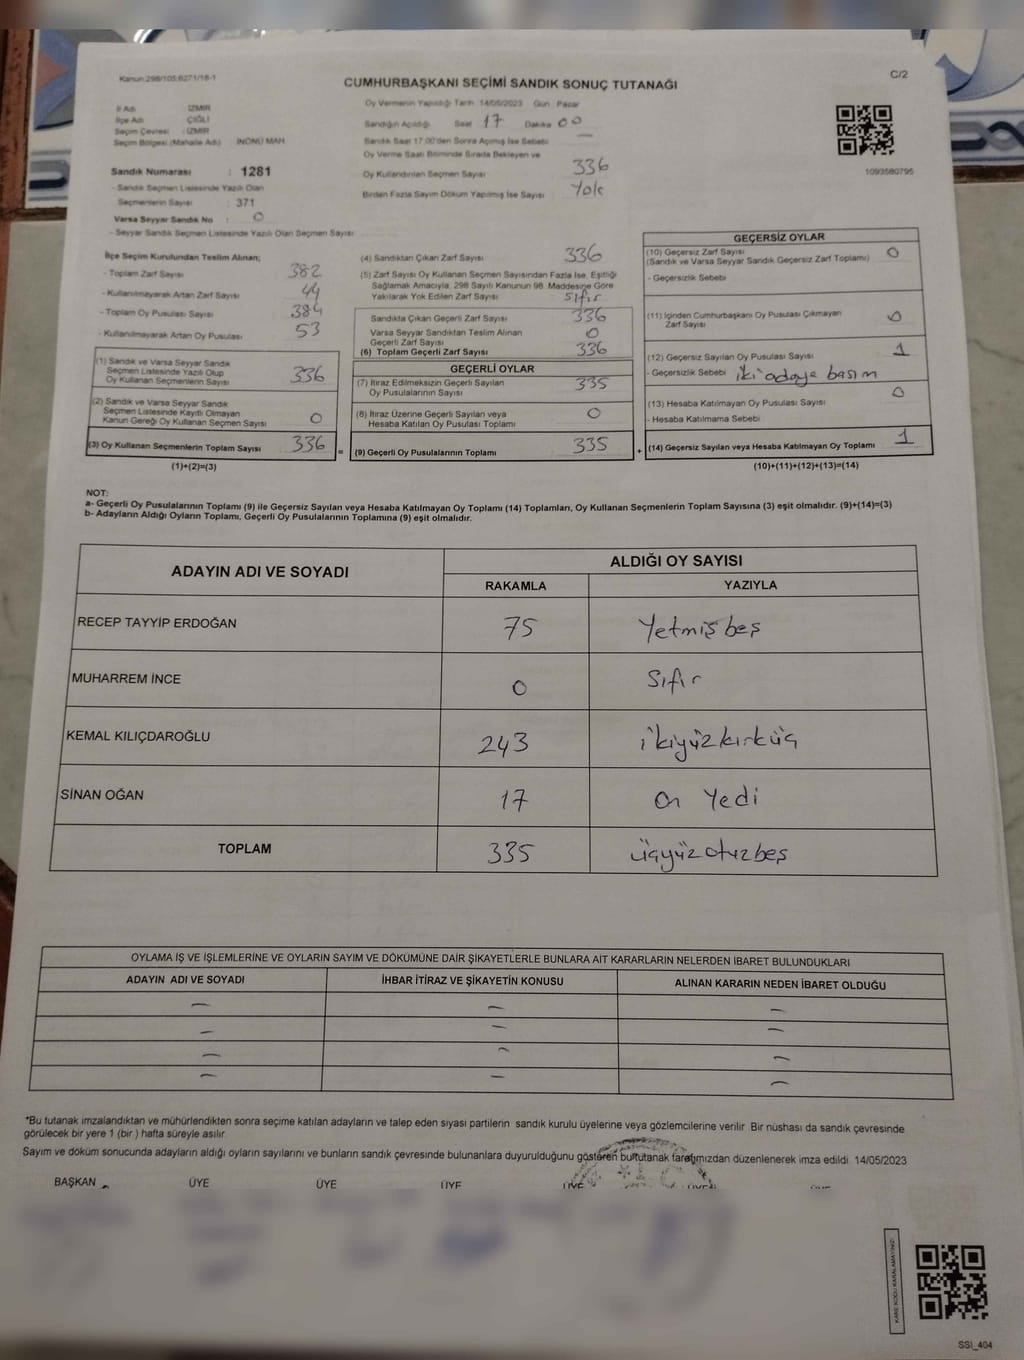 Kanun:298/105;6271/18-1
C/2
CUMHURBAŞKANI SEÇİMİ SANDIK SONUÇ TUTANAĞI
İl Adı İZMİR
İlçe Adı ÇİĞLİ
Seçim Çevresi : İZMİR
Seçim Bölgesi (Mahalle Adı) İNÖNÜ MAH.
Sandık Numarası : 1281
- Sandık Seçmen Listesinde Yazılı Olan
Seçmenlerin Sayısı : 371
Varsa Seyyar Sandık No : 0
- Seyyar Sandık Seçmen Listesinde Yazılı Olan Seçmen Sayısı
Oy Vermenin Yapıldığı Tarih 14/05/2023 Gün : Pazar
Sandığın Açıldığı Saat 17 Dakika 00
Sandık Saat 17:00'den Sonra Açılmış İse Sebebi —
Oy Verme Saati Bitiminde Sırada Bekleyen ve
Oy Kullandırılan Seçmen Sayısı 336
Birden Fazla Sayım Döküm Yapılmış İse Sayısı Yok
1093580795
İlçe Seçim Kurulundan Teslim Alınan;
- Toplam Zarf Sayısı 382
- Kullanılmayarak Artan Zarf Sayısı 44
- Toplam Oy Pusulası Sayısı 384
- Kullanılmayarak Artan Oy Pusulası 53
(1) Sandık ve Varsa Seyyar Sandık
Seçmen Listesinde Yazılı Olup
Oy Kullanan Seçmenlerin Sayısı 336
(2) Sandık ve Varsa Seyyar Sandık
Seçmen Listesinde Kayıtlı Olmayan
Kanun Gereği Oy Kullanan Seçmen Sayısı 0
(3) Oy Kullanan Seçmenlerin Toplam Sayısı 336
(1)+(2)=(3)
(4) Sandıktan Çıkan Zarf Sayısı 336
(5) Zarf Sayısı Oy Kullanan Seçmen Sayısından Fazla İse, Eşitliği
Sağlamak Amacıyla, 298 Sayılı Kanunun 98. Maddesine Göre
Yakılarak Yok Edilen Zarf Sayısı Sıfır
Sandıkta Çıkan Geçerli Zarf Sayısı 336
Varsa Seyyar Sandıktan Teslim Alınan
Geçerli Zarf Sayısı 0
(6) Toplam Geçerli Zarf Sayısı 336
GEÇERLİ OYLAR
(7) İtiraz Edilmeksizin Geçerli Sayılan
Oy Pusulalarının Sayısı 335
(8) İtiraz Üzerine Geçerli Sayılan veya
Hesaba Katılan Oy Pusulası Toplamı 0
= (9) Geçerli Oy Pusulalarının Toplamı 335 +
GEÇERSİZ OYLAR
(10) Geçersiz Zarf Sayısı 0
(Sandık ve Varsa Seyyar Sandık Geçersiz Zarf Toplamı)
- Geçersizlik Sebebi
(11) İçinden Cumhurbaşkanı Oy Pusulası Çıkmayan
Zarf Sayısı 0
(12) Geçersiz Sayılan Oy Pusulası Sayısı 1
- Geçersizlik Sebebi iki adaya basım
(13) Hesaba Katılmayan Oy Pusulası Sayısı 0
- Hesaba Katılmama Sebebi
(14) Geçersiz Sayılan veya Hesaba Katılmayan Oy Toplamı 1
(10)+(11)+(12)+(13)=(14)
NOT:
a- Geçerli Oy Pusulalarının Toplamı (9) ile Geçersiz Sayılan veya Hesaba Katılmayan Oy Toplamı (14) Toplamları, Oy Kullanan Seçmenlerin Toplam Sayısına (3) eşit olmalıdır. (9)+(14)=(3)
b- Adayların Aldığı Oyların Toplamı, Geçerli Oy Pusulalarının Toplamına (9) eşit olmalıdır.
ADAYIN ADI VE SOYADI ALDIĞI OY SAYISI
RAKAMLA YAZIYLA
RECEP TAYYİP ERDOĞAN 75 Yetmişbeş
MUHARREM İNCE 0 Sıfır
KEMAL KILIÇDAROĞLU 243 ikiyüzkırküç
SİNAN OĞAN 17 On Yedi
TOPLAM 335 üçyüzotuzbeş
OYLAMA İŞ VE İŞLEMLERİNE VE OYLARIN SAYIM VE DÖKÜMÜNE DAİR ŞİKAYETLERLE BUNLARA AİT KARARLARIN NELERDEN İBARET BULUNDUKLARI
ADAYIN ADI VE SOYADI İHBAR İTİRAZ VE ŞİKAYETİN KONUSU ALINAN KARARIN NEDEN İBARET OLDUĞU
— — —
— — —
— — —
— — —
*Bu tutanak imzalandıktan ve mühürlendikten sonra seçime katılan adayların ve talep eden siyasi partilerin sandık kurulu üyelerine veya gözlemcilerine verilir Bir nüshası da sandık çevresinde
görülecek bir yere 1 (bir ) hafta süreyle asılır
Sayım ve döküm sonucunda adayların aldığı oyların sayılarını ve bunların sandık çevresinde bulunanlara duyurulduğunu gösteren bu tutanak tarafımızdan düzenlenerek imza edildi 14/05/2023
BAŞKAN ÜYE ÜYE ÜYE ÜYE
KARE KODU KARALAMAYINIZ!
SSI_404